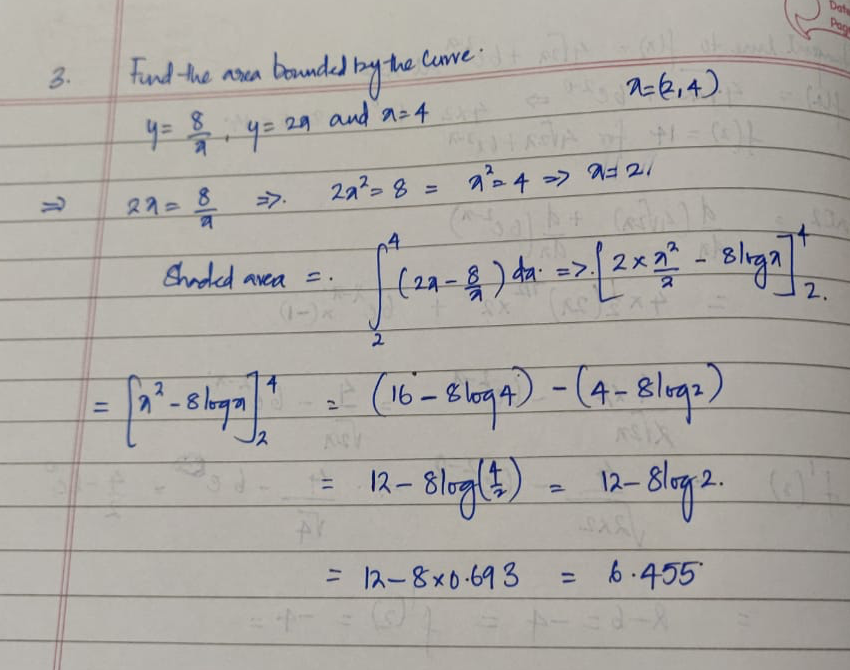 Date
Page
3. Find the area bounded by the curve.
y = 8/x, y = 2x and x = 4 x = (2, 4)
⇒ 2x = 8/x ⇒. 2x² = 8 = x² = 4 ⇒ x = 2.
Shaded area =. ∫₂⁴ (2x − 8/x) dx. ⇒. [2 × x²/2 − 8 log x]₂⁴.
= [x² − 8 log x]₂⁴ = (16 − 8 log 4) − (4 − 8 log 2)
= 12 − 8 log(4/2) = 12 − 8 log 2.
= 12 − 8 × 0.693 = 6.455